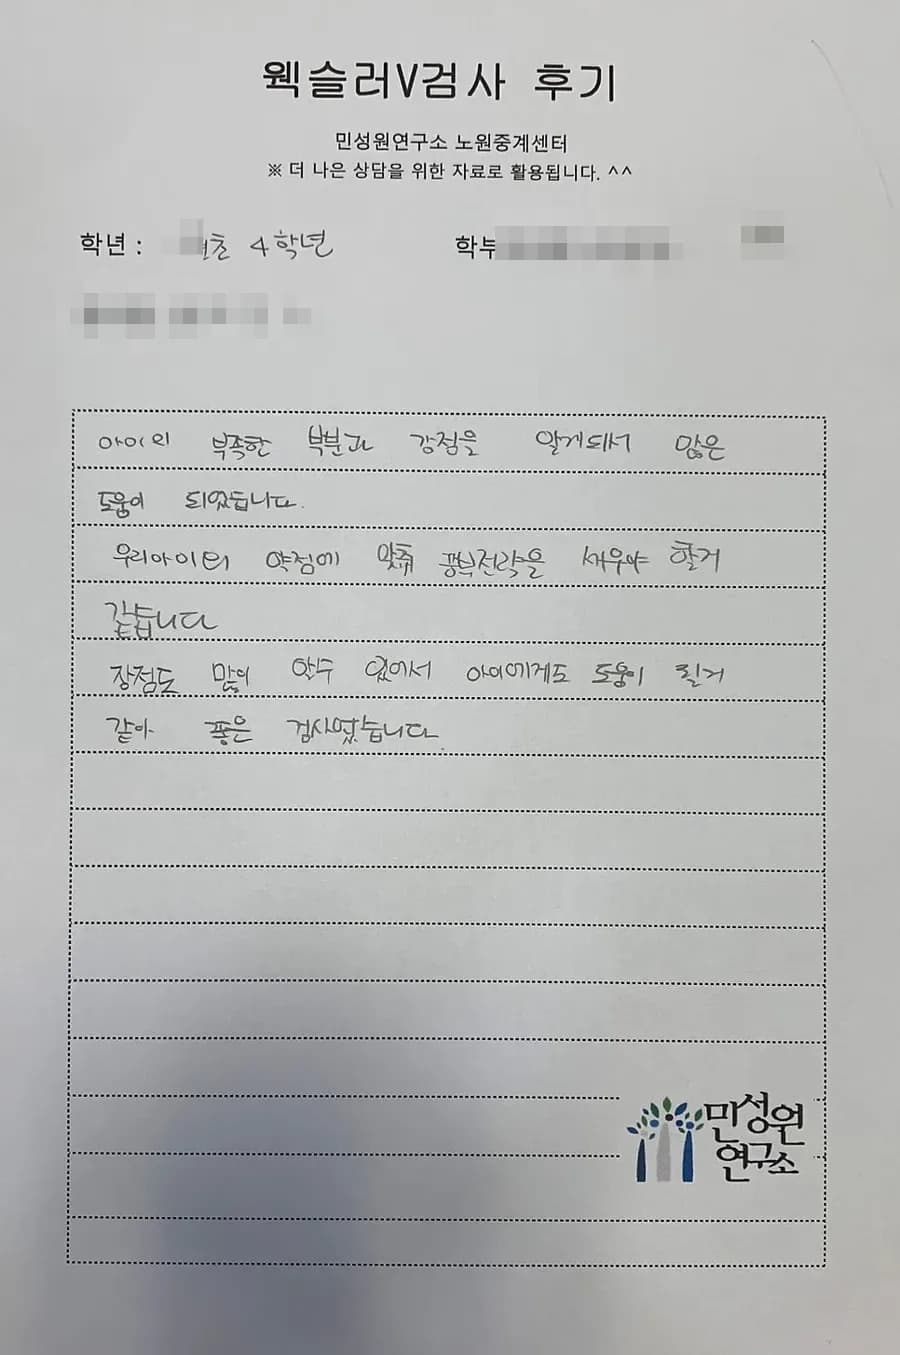 웩슬러V검사 후기
민성원연구소 노원중계센터
※ 더 나은 상담을 위한 자료로 활용됩니다. ^^
학년 : 초 4학년 학부
아이의 부족한 부분과 강점을 알게되서 많은
도움이 되었습니다.
우리아이의 약점에 맞춰 공부전략을 세우야 할거
같습니다
장점도 많이 알수 있어서 아이에게도 도움이 될거
같아 좋은 검사였습니다.
민성원
연구소